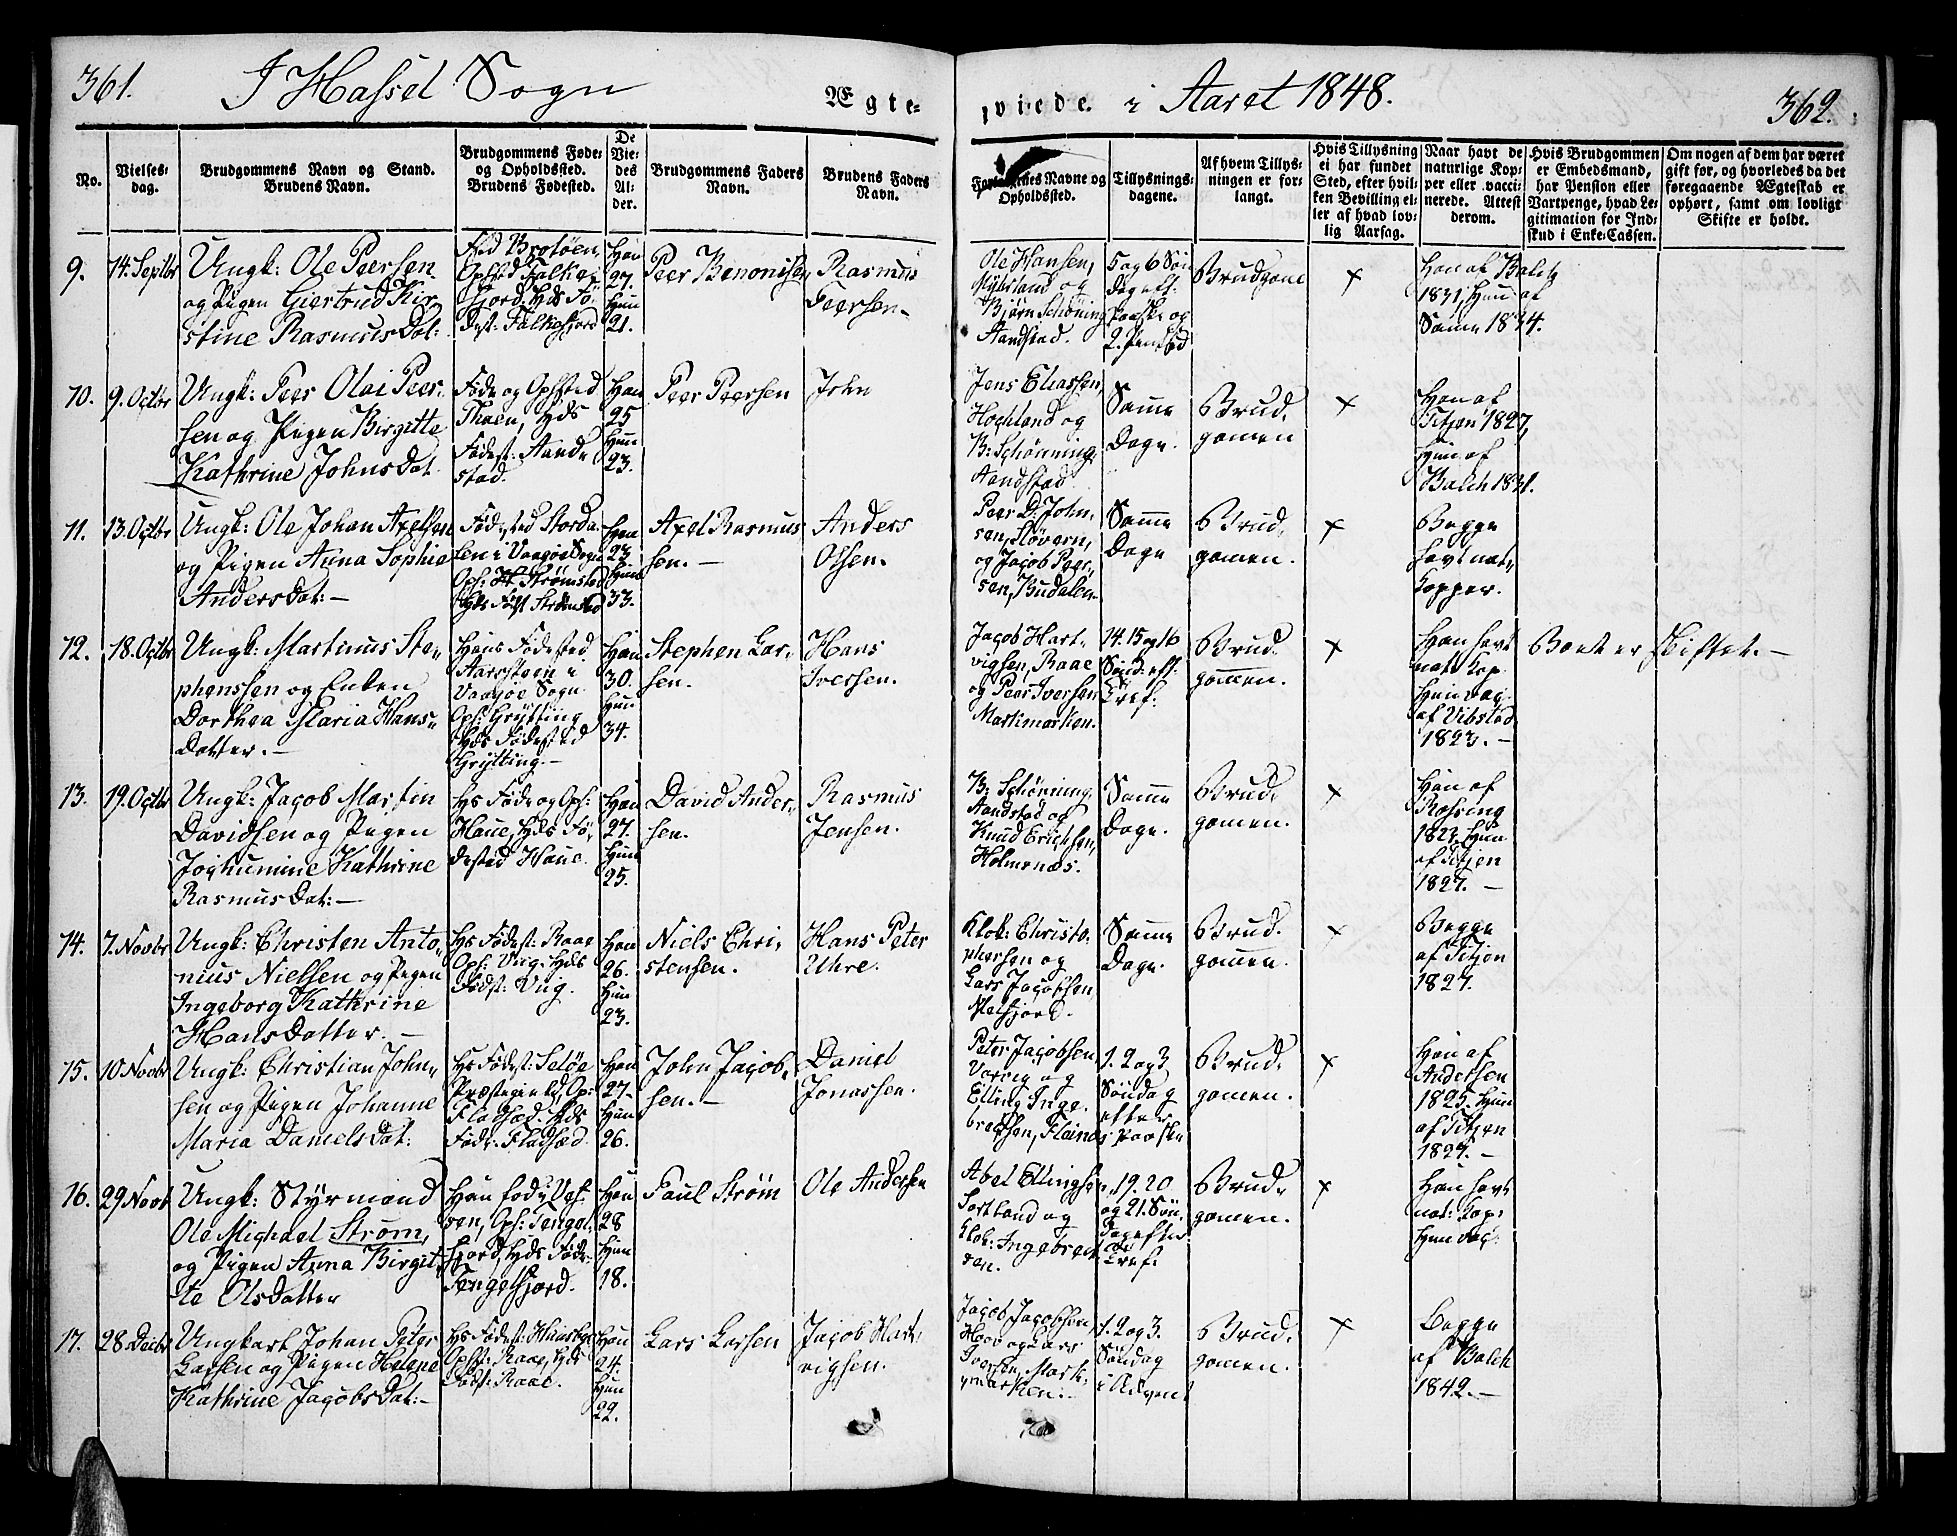 361.
I Hassel Sogn
Ægte-
viede. i Aaret 1848.
362.
No.
Vielses-
dag.
Brudgommens Navn og Stand.
Brudens Navn.
Brudgommens Føde-
og Opholdssted.
Brudens Fødested.
De
Vie-
des
Al-
der.
Brudgommens Faders
Navn.
Brudens Faders
Navn.
Navne og
Opholdssted.
Tillysnings-
dagene.
Af hvem Tillys-
ningen er for-
langt.
Hvis Tillysning
ei har fundet
Sted, efter hvil-
ken Bevilling el-
ler af hvad lov-
lig Aarsag.
Naar havt de
naturlige Kop-
per eller vacci-
nerede. Attest
derom.
Hvis Brudgommen
er Embedsmand,
har Pension eller
Vartpenge, hvad Le-
gitimation for Ind-
skud i Enke-Cassen.
Om nogen af dem har været
gift før, og hvorledes da det
foregaaende Ægteskab er
ophørt, samt om lovligt
Skifte er holdt.
9.
14. Septbr
Ungk: Ole Peersen
og Pigen Giertrud Kir-
stine RasmusDat:
Fød Brotøen,
Opsted Falke-
fjord. Hds Fø-
dest: Falkefjord
Han
27.
Hun
21.
Peer Benonisen
Rasmus
Peersen.
Ole Hansen,
og
Bjørn Schöning
Aandstad.
5 og 6 Søn
dag eft:
Paaske og
2. Pintsed
Brudgome
+
Han af Balch
1831, Hun af
Samme 1834.
10.
9. Octbr
Ungk: Peer Olai Peer-
sen og Pigen Birgitte
Kathrine JohnsDat.
Føde og Ophsted
Thoen, Hds
Fødest: Aand-
stad.
Han
25
Hun
23.
Peer Peersen
John
Jens Eliassen,
Hochland og
B: Schönning,
Aandstad.
Samme
Dage.
Brud-
gomen
+
Han af
Titjen 1827,
Hun af
Balch 1831.
11.
13. Octbr
Ungk: Ole Johan Axelsen
og Pigen Anna Sophie
AndersDat: —
Fødested Storda-
len i Vaagøe Sogn
Ops: Strømsted
Hds Fest Strømsted
Han
23
Hun
33.
Axel Rasmus
sen. —
Anders
Olsen.
Peer D: John-
sen, Støvern,
og Jacob Peer-
sen, Kudalen
Samme
Dage
Brud-
gomen.
+
Begge
havt nat-
kopper.
12.
18. Octbr
Ungk: Martinus Ste-
phenssen og Enken
Dorthea Maria Hans-
Datter. —
Hans Fødested
Aarssteen i
Vaagøe Sogn
Ops: Grytting
Hds Fødested
Grytting. —
Han
30.
Hun
34.
Stephen Lar-
sen.
Hans
Iversen.
Jacob Hart-
vigsen, Raae
og Peer Iversen
Markmarken.
14. 15 og 16
Sönd: eft:
Tref:
Brud-
gommen.
+
Han havt
nat: Kop.
Hun vac:
af Vibstad
1823. —
Boet er skiftet. —
13.
19. Octbr
Ungk: Jacob Martin
Davidsen og Pigen
Jochumine Kathrine
RasmusDat: —
Hs Føde og Ops:
Haue, Hds Fø-
dested Haue.
Han
27.
Hun
25.
David Ander-
sen.
Rasmus
Jensen.
B: Schönning,
Aandstad og
Knud Erichsen,
Holmenæs.
Samme
Dage.
Brud-
gomen.
+
Han af
Rossing
1823, Hun
af Titjen
1827. —
14.
7. Novbr
Ungk: Christen Anto-
nius Nielsen og Pigen
Ingeborg Kathrine
HansDatter. —
Hs Fødest: Raae
Ops: Vug. Hds
Fødst: Vug.
Han
26.
Hun
23.
Niels Chri-
stensen.
Hans Peter
Uhre.
Klok: Christo-
phersen og
Lars Jacobsen
Melfjord.
Samme
Dage.
Brud-
gommen.
+
Begge
af Titjen
1827.
15.
10 Novbr
Ungk: Christian John-
sen og Pigen Johanne
Maria DanielsDat:
Hs Fødest: Seløe
Præstegield, Op:
Fladsæd. Hds
Føde: Fladsæd.
Han
27.
Hun
26.
John Jacob-
sen. —
Daniel
Jonassen.
Peter Jacobsen,
Vorvig og
Elling Inge-
bretsen, Fleines
1. 2 og 3
Söndag
efter
Paaske
Brud-
gomen.
+
Han af
Andersen
1825. Hun
af Titjen
1827. —
16.
29 Novb
Ungk: Styrmand
Ole Michael Strøm,
og Pigen Anna Birgit-
te Olsdatter
Han fød
Ops: Fengel-
fjord, Hds Føde-
Fengelfjord.
Han
28
Hun
18.
Paul Strøm
Ole Andersen
Abel Ellingsen,
Sortland og
Klok: Ingebret-
sen.
19. 20
og 21. Sön-
dag efter
Tref:
Brud-
gomen.
+
Han havt
nat: Kop:
Hun vac:
17.
28. Decbr
Ungkarl Johan Peter
Larsen og Pigen Helene
Kathrine JacobsDat: —
Hs Fødest:
Opst: Raae, Hds
Födst: Raae.
Han
24.
Hun
22.
Lars Larsen
Jacob Hart-
vigsen.
Jacob Jacobsen,
og Lars
Iversen, Mark-
marken. —
1. 2 og 3.
Söndag
i Advent
Brud-
gomen.
+
Begge
af Balch
1842. —